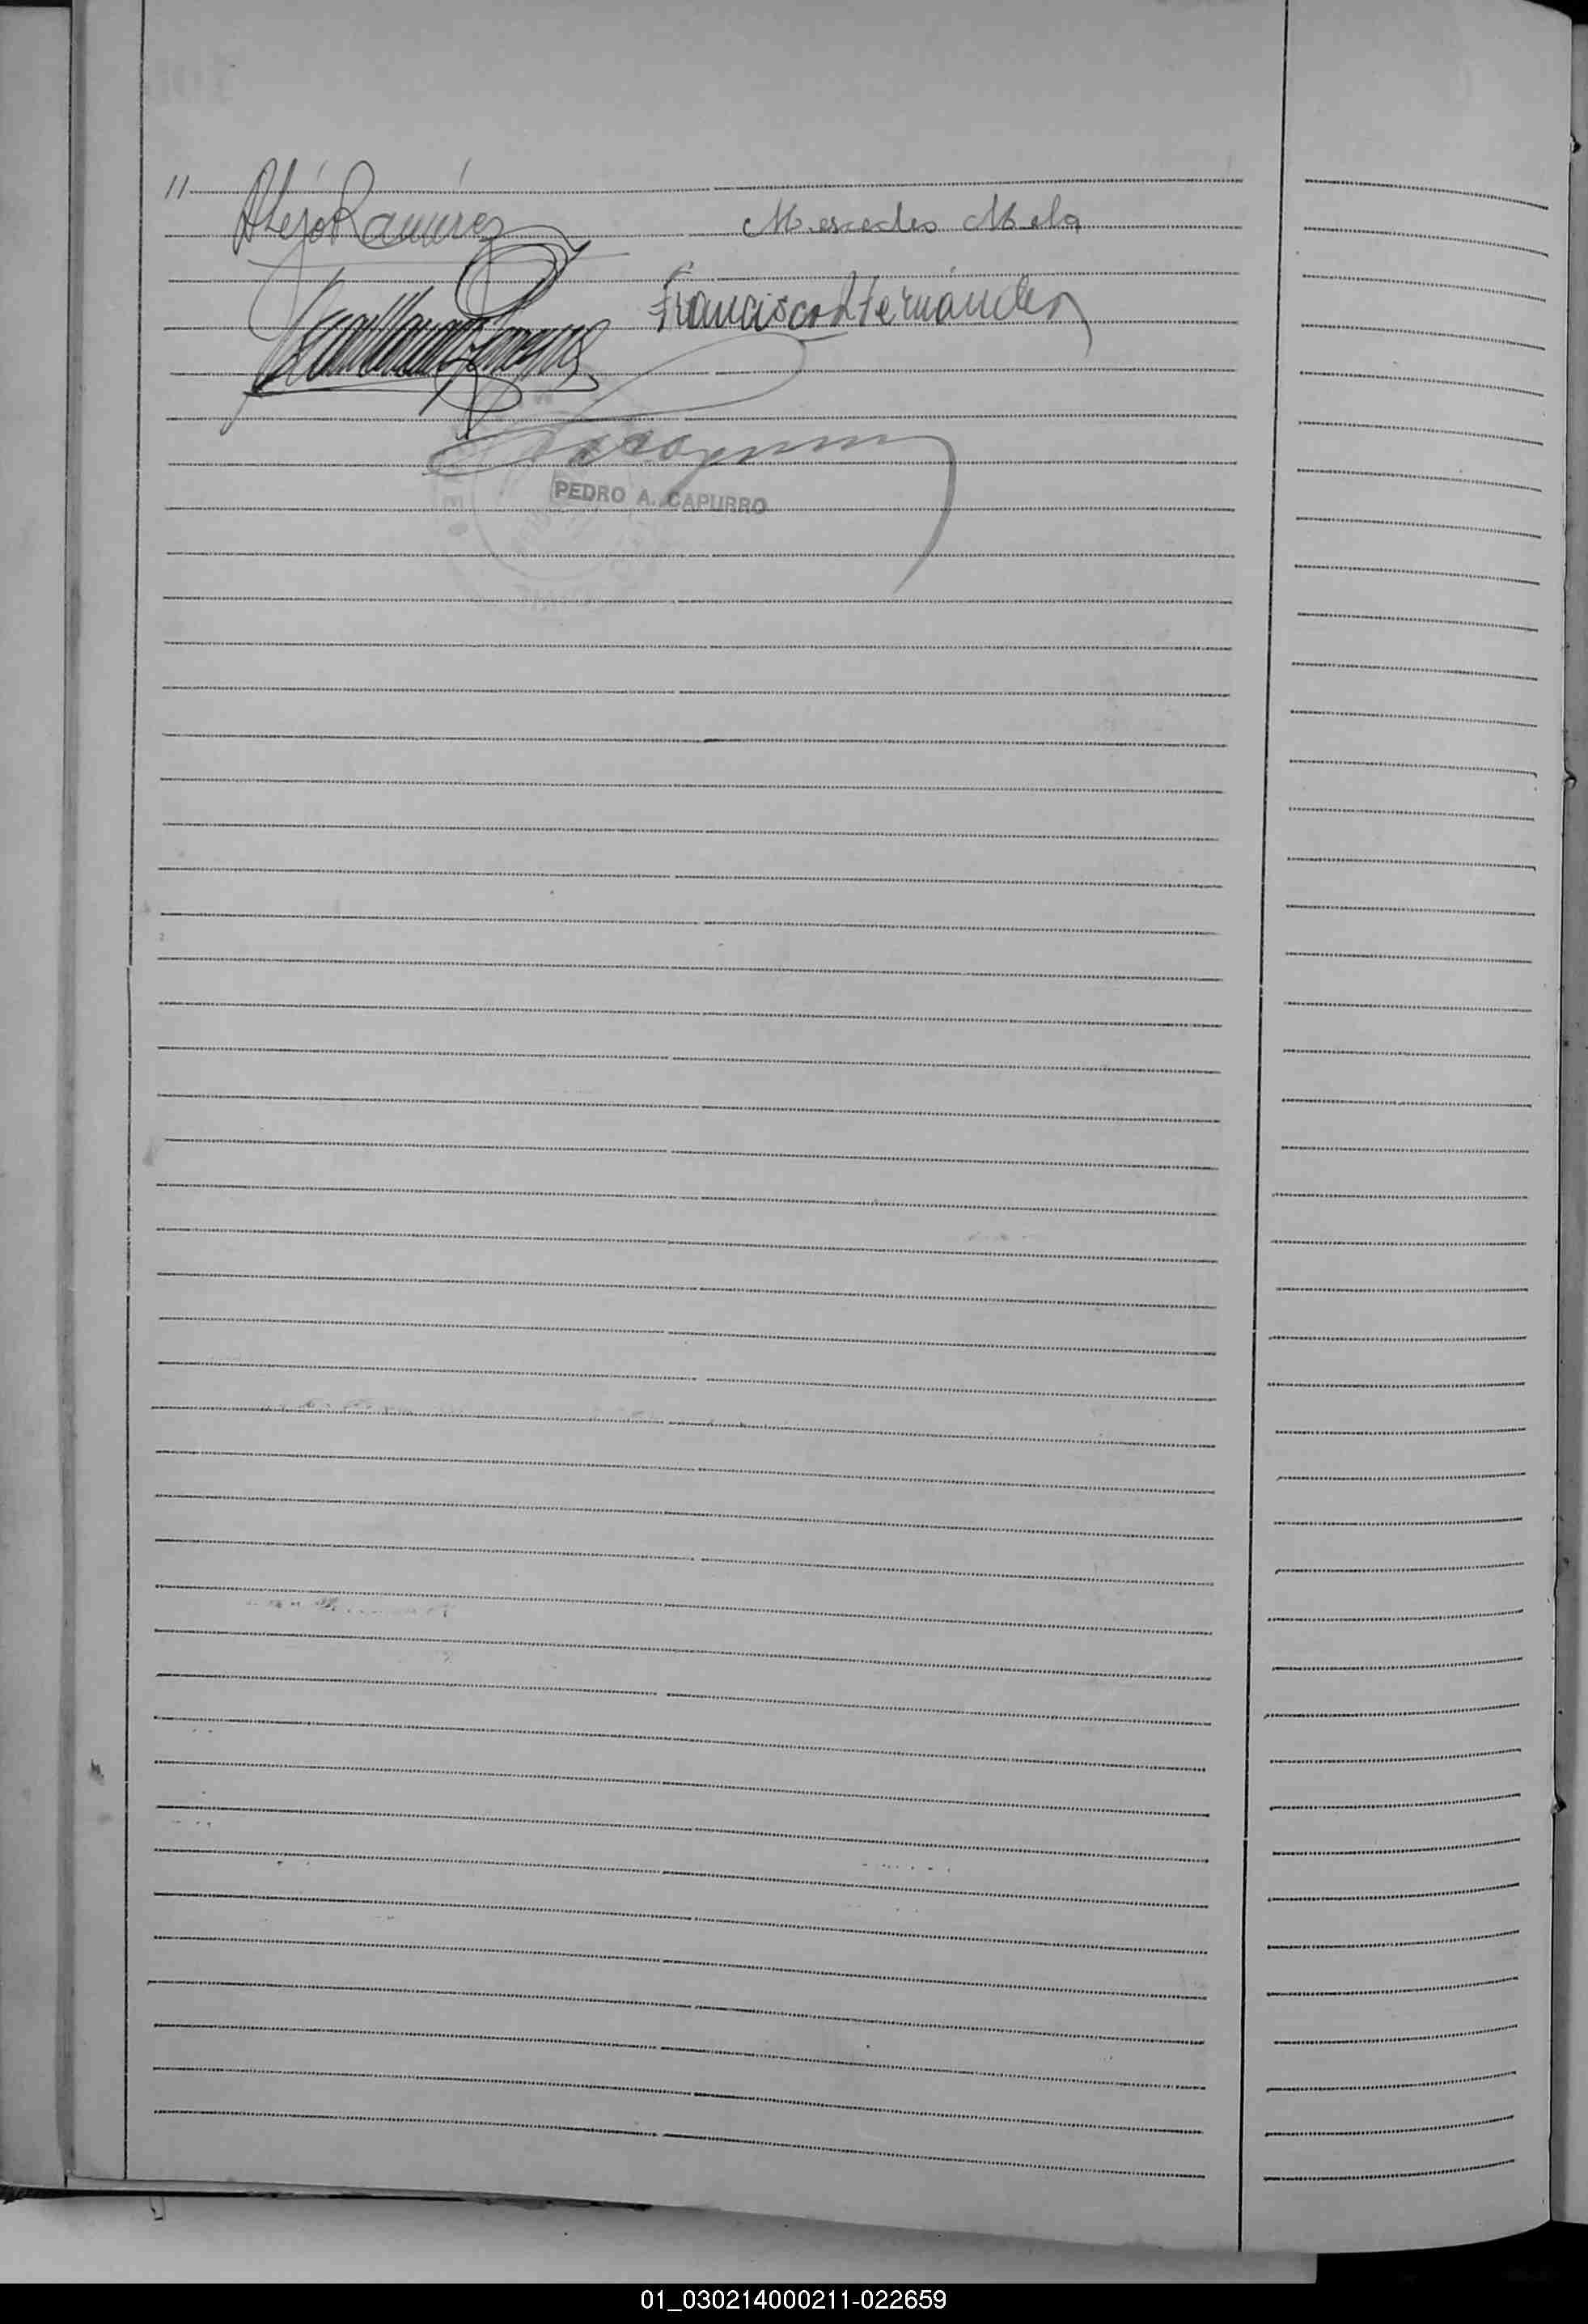 11
Alejo Ramírez Mercedes Mela
Francisco A Fernández
PEDRO A. CAPURRO
01_030214000211-022659